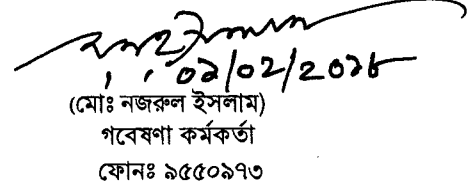 ০১/০২/২০১৮
(মোঃ নজরুল ইসলাম)
গবেষণা কর্মকর্তা
ফোনঃ ৯৫৫০৯৭৩